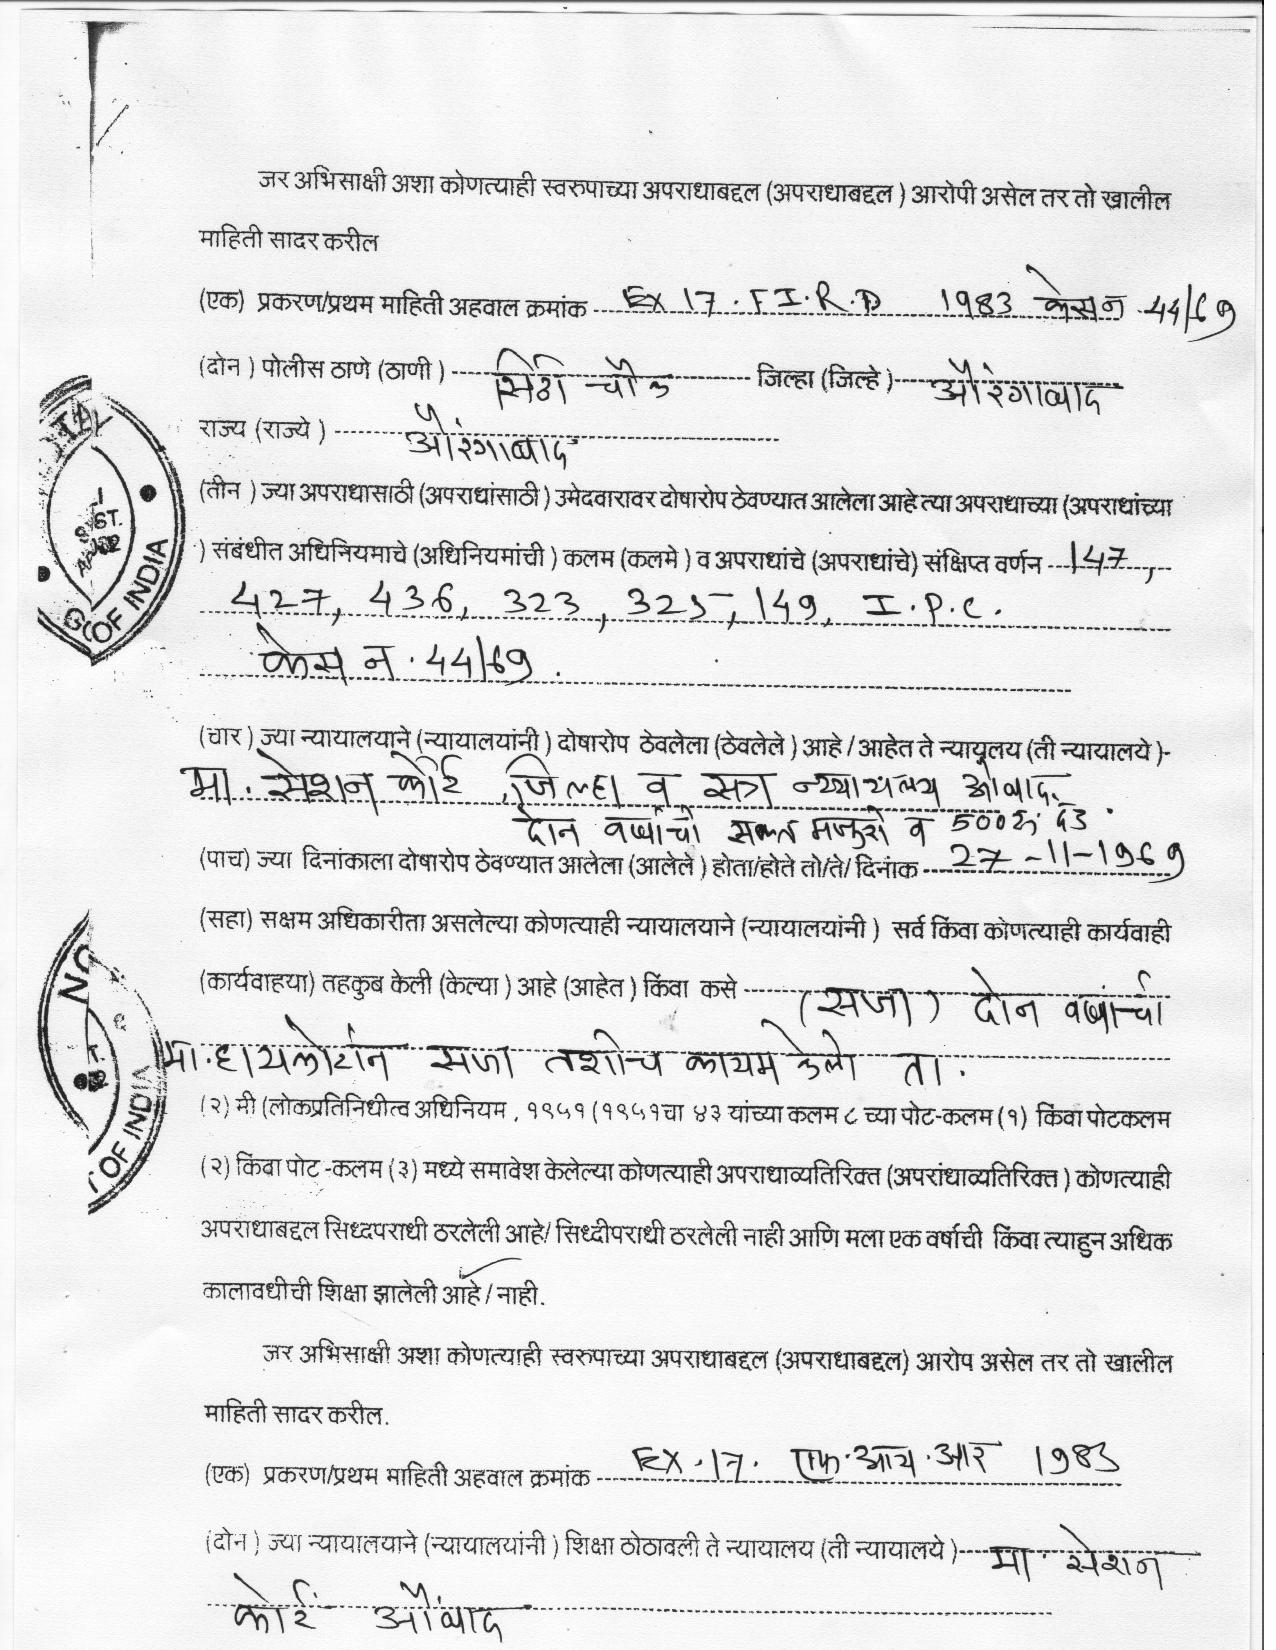 जर अभिसाक्षी अशा कोणत्याही स्वरुपाच्या अपराधाबद्दल (अपराधाबद्दल ) आरोपी असेल तर तो खालील
माहिती सादर करील
(एक) प्रकरण/प्रथम माहिती अहवाल क्रमांक Ex 17. F I.R.D 1983 केस न. 44/69
(दोन ) पोलीस ठाणे (ठाणी ) सिटी चौक जिल्हा (जिल्हे ) औरंगाबाद
राज्य (राज्ये ) औरंगाबाद
(तीन ) ज्या अपराधासाठी (अपराधांसाठी ) उमेदवारावर दोषारोप ठेवण्यात आलेला आहे त्या अपराधाच्या (अपराधांच्या
) संबंधीत अधिनियमाचे (अधिनियमांची ) कलम (कलमे ) व अपराधांचे (अपराधांचे) संक्षिप्त वर्णन 147,
427, 436, 323, 325, 149, I.P.C.
केस न. 44/69.
(चार ) ज्या न्यायालयाने (न्यायालयांनी ) दोषारोप ठेवलेला (ठेवलेले ) आहे / आहेत ते न्यायालय (ती न्यायालये )-
मा. सेशन कोर्ट, जिल्हा व सत्र न्यायालय औ'बाद.
दोन वर्षाची सक्त मजुरी व 500 रु दंड.
(पाच) ज्या दिनांकाला दोषारोप ठेवण्यात आलेला (आलेले ) होता/होते तो/ते/ दिनांक 27-11-1969
(सहा) सक्षम अधिकारीता असलेल्या कोणत्याही न्यायालयाने (न्यायालयांनी ) सर्व किंवा कोणत्याही कार्यवाही
(कार्यवाहया) तहकुब केली (केल्या ) आहे (आहेत ) किंवा कसे (सजा) दोन वर्षाची
मा. हायकोर्टाने सजा तशीच कायम केली ता.
(२) मी (लोकप्रतिनिधीत्व अधिनियम , १९५१ (१९५१चा ४३ यांच्या कलम ८ च्या पोट-कलम (१) किंवा पोटकलम
(२) किंवा पोट -कलम (३) मध्ये समावेश केलेल्या कोणत्याही अपराधाव्यतिरिक्त (अपरांधाव्यतिरिक्त ) कोणत्याही
अपराधाबद्दल सिध्दपराधी ठरलेली आहे/ सिध्दीपराधी ठरलेली नाही आणि मला एक वर्षाची किंवा त्याहुन अधिक
कालावधीची शिक्षा झालेली आहे / नाही.
जर अभिसाक्षी अशा कोणत्याही स्वरुपाच्या अपराधाबद्दल (अपराधाबद्दल) आरोप असेल तर तो खालील
माहिती सादर करील.
(एक) प्रकरण/प्रथम माहिती अहवाल क्रमांक Ex.17. एफ.आय.आर 1983
(दोन ) ज्या न्यायालयाने (न्यायालयांनी ) शिक्षा ठोठावली ते न्यायालय (ती न्यायालये ) मा. सेशन
कोर्ट औ'बाद
OF INDIA
OF INDIA